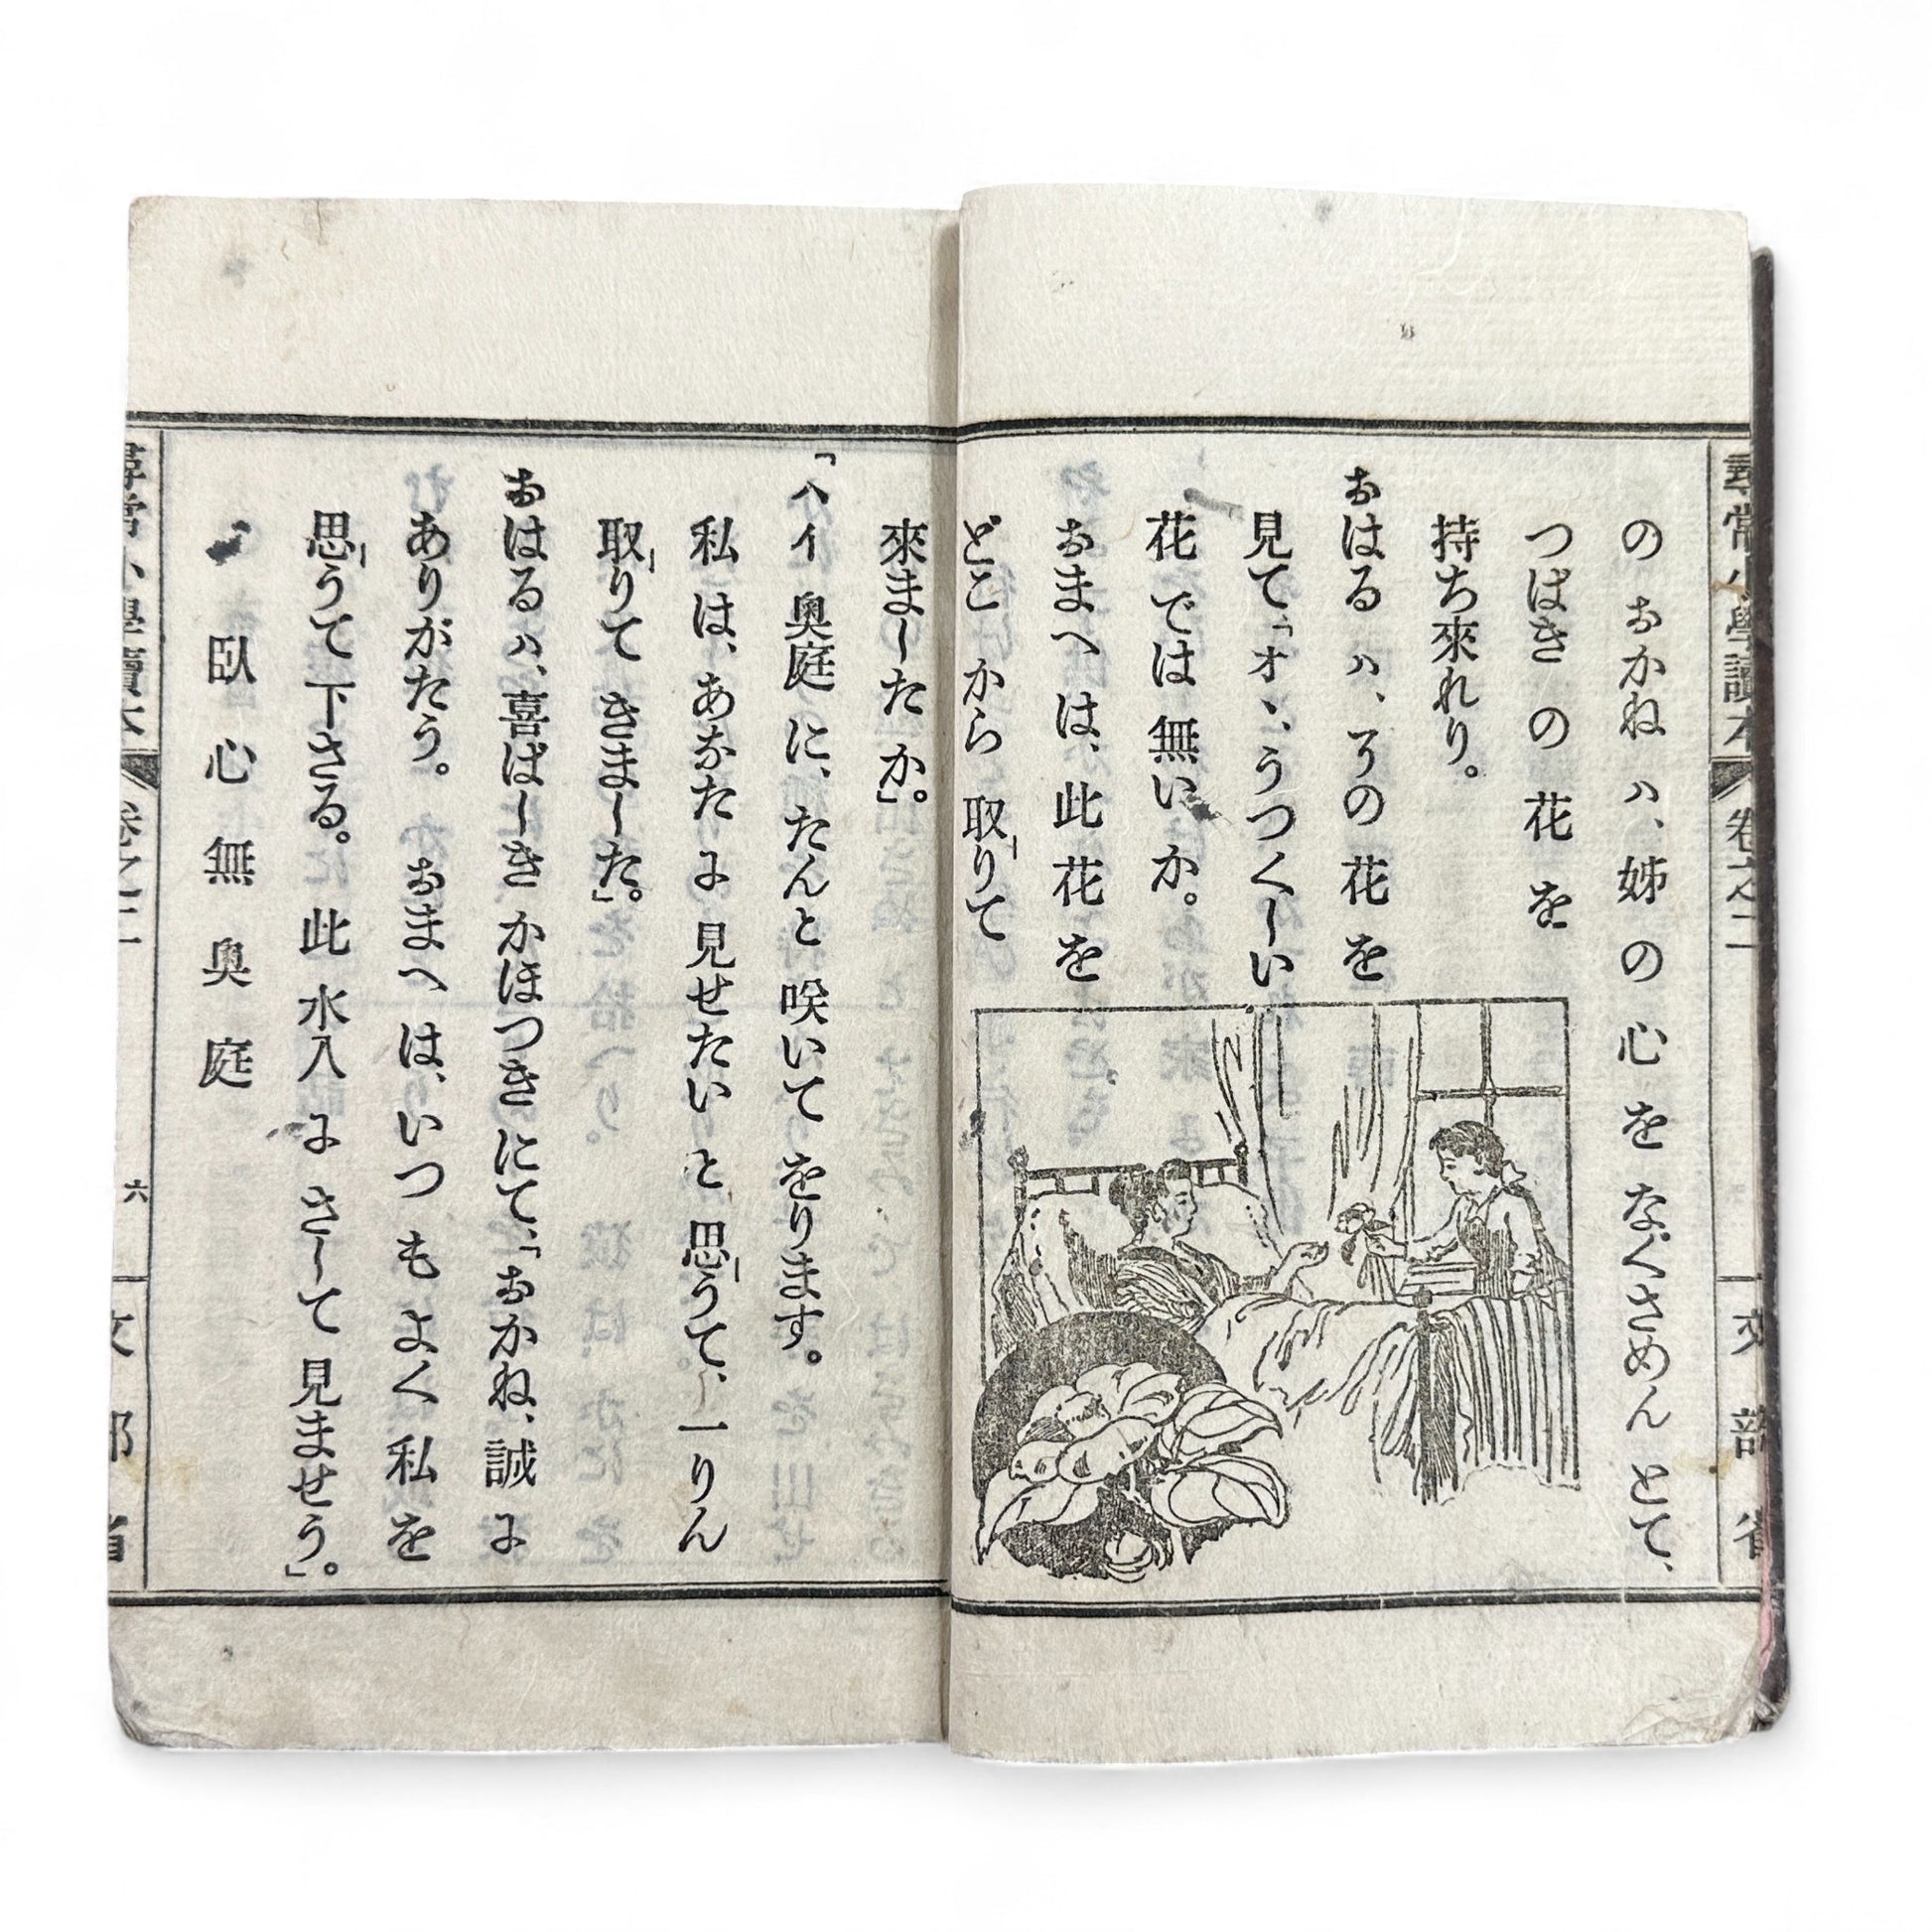 尋常小學讀本 卷之二 文部省
の おかね ハ、姊 の 心 を なぐさめん とて、
つばき の 花 を
持ち來れり。
おはる ハ、その 花 を
見て、「オヽ、うつくしい
花 では 無い か。
おまへ は、此 花 を
どこ から 取りて
來ました か」。
「ハイ 奥庭 に、たんと 咲いて をります。
私 は、あなた に 見せたい と 思うて、一りん
取りて きました」。
おはる ハ、喜ばしき かほつき にて、「おかね、誠 に
ありがたう。 おまへ は、いつ も よく 私 を
思うて 下さる。 此 水入 に さして 見ませう」。
臥 心 無 奥 庭
尋常小學讀本 卷之二 六 文部省